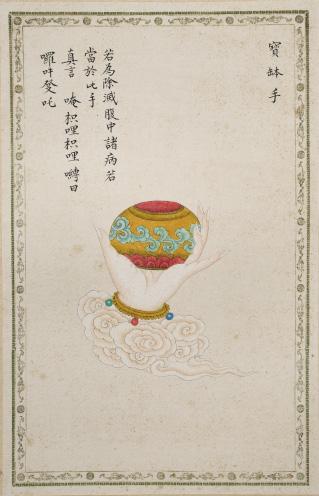 寶鉢手
若為除滅腹中諸病苦
當於此手
真言 唵枳哩枳哩 嚩日
囉吽癹吒